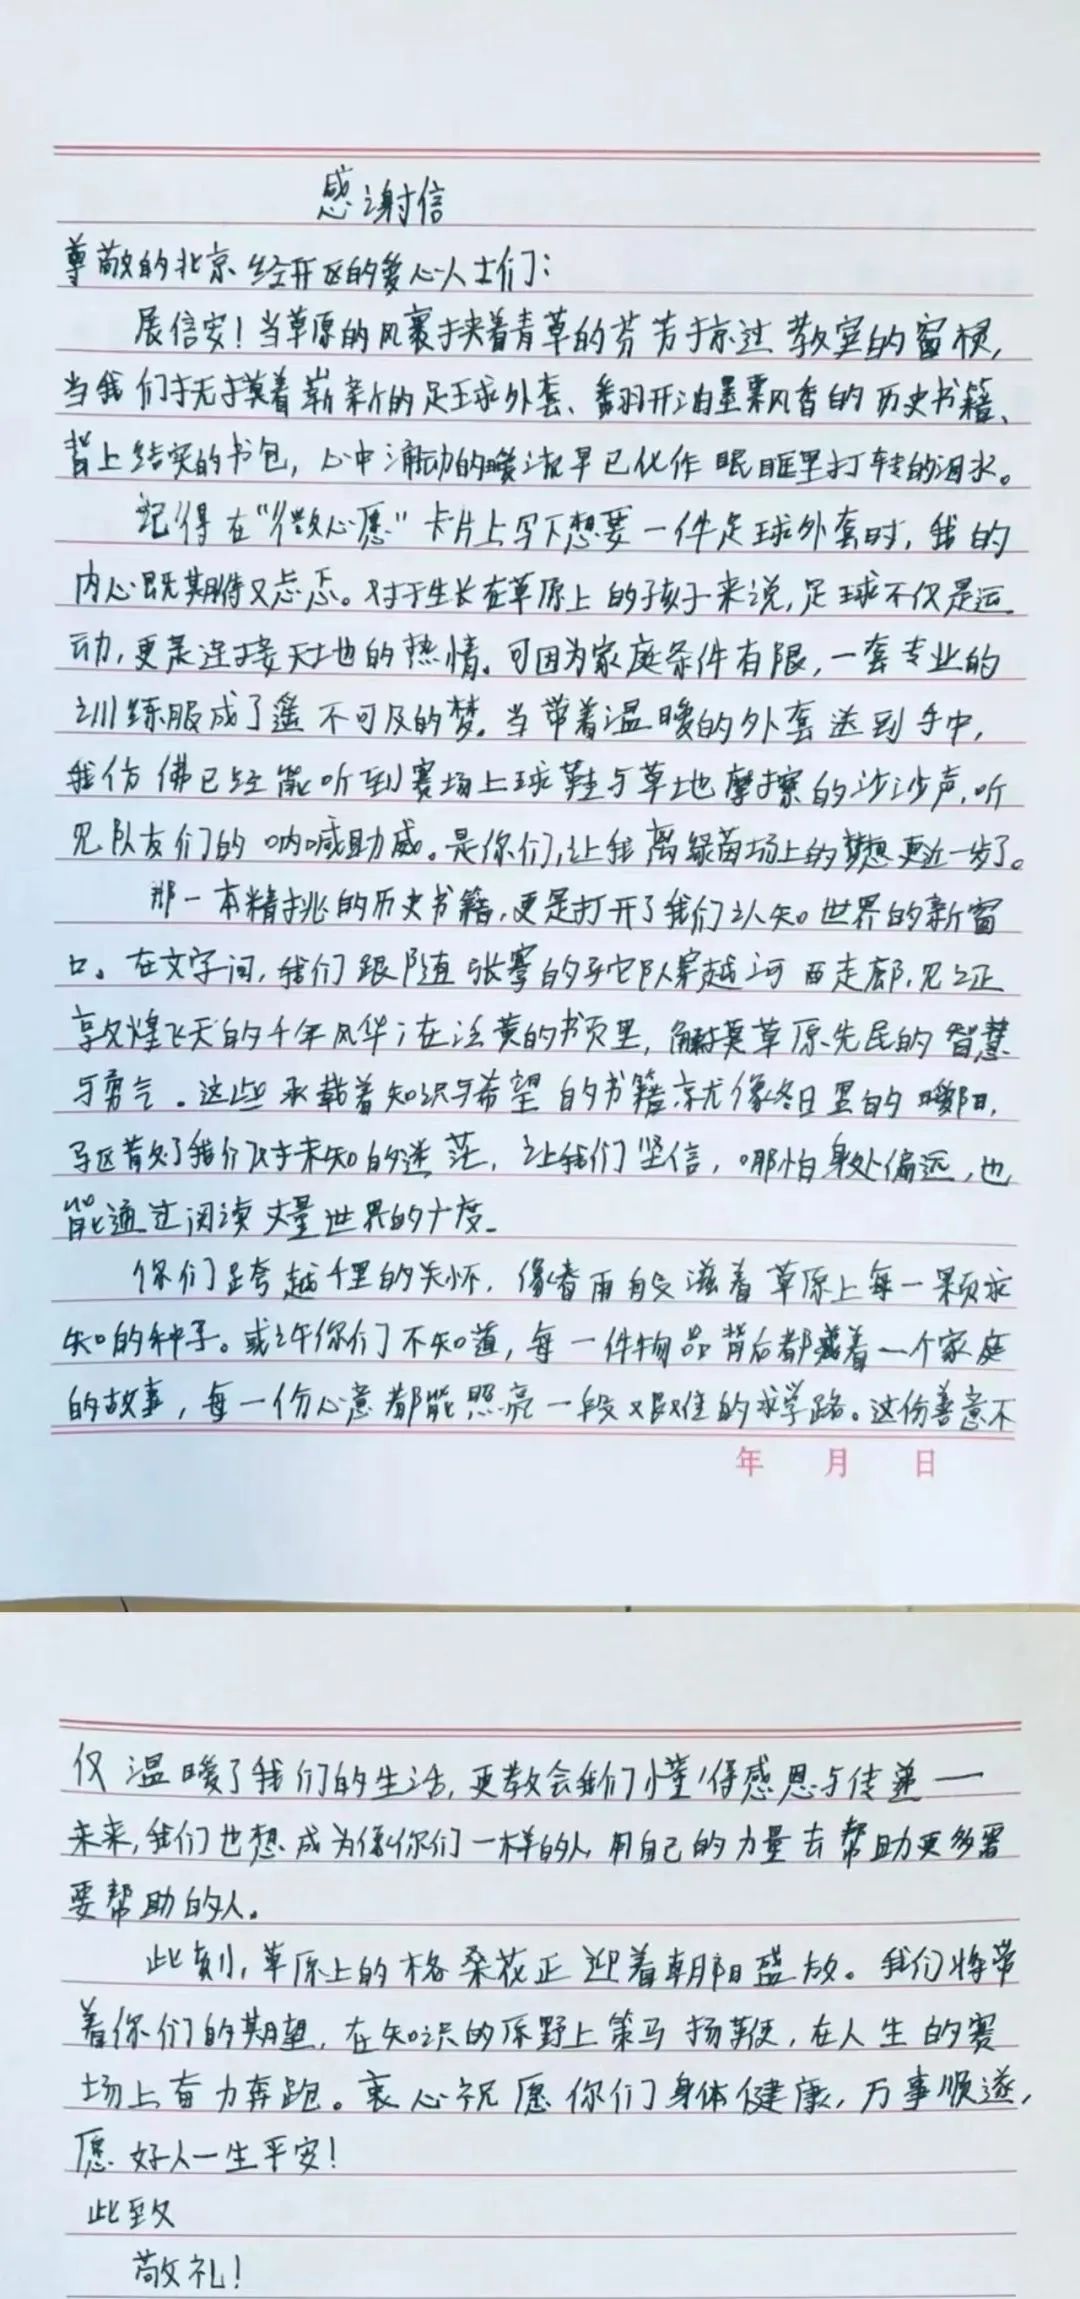 感谢信
尊敬的北京经开区的爱心人士们：
展信安！当草原的风裹挟着青草的芬芳掠过教室的窗棂，
当我们抚摸着崭新的足球外套、翻开油墨飘香的历史书籍、
背上结实的书包，心中涌动的暖流早已化作眼眶里打转的泪水。
记得在“微心愿”卡片上写下想要一件足球外套时，我的
内心既期待又忐忑。对于生长在草原上的孩子来说，足球不仅是运
动，更是连接天地的热情。可因为家庭条件有限，一套专业的
训练服成了遥不可及的梦。当带着温暖的外套送到手中，
我仿佛已经能听到赛场上球鞋与草地摩擦的沙沙声，听
见队友们的呐喊助威。是你们，让我离绿茵场上的梦想更近一步了。
那一本精挑的历史书籍，更是打开了我们认知世界的新窗
口。在文字间，我们跟随张骞的驼队穿越河西走廊，见证
敦煌飞天的千年风华；在泛黄的书页里，触摸草原先民的智慧
与勇气。这些承载着知识与希望的书籍就像冬日里的暖阳，
驱散了我们对未知的迷茫，让我们坚信，哪怕身处偏远，也
能通过阅读丈量世界的广度。
你们跨越千里的关怀，像春雨般滋着草原上每一颗求
知的种子。或许你们不知道，每一件物品背后都藏着一个家庭
的故事，每一份心意都能照亮一段艰难的求学路。这份善意不
年 月 日
仅温暖了我们的生活，更教会我们懂得感恩与传递——
未来，我们也想成为像你们一样的人，用自己的力量去帮助更多需
要帮助的人。
此刻，草原上的格桑花正迎着朝阳盛放。我们将带
着你们的期望，在知识的原野上策马扬鞭，在人生的赛
场上奋力奔跑。衷心祝愿你们身体健康，万事顺遂，
愿好人一生平安！
此致
敬礼！